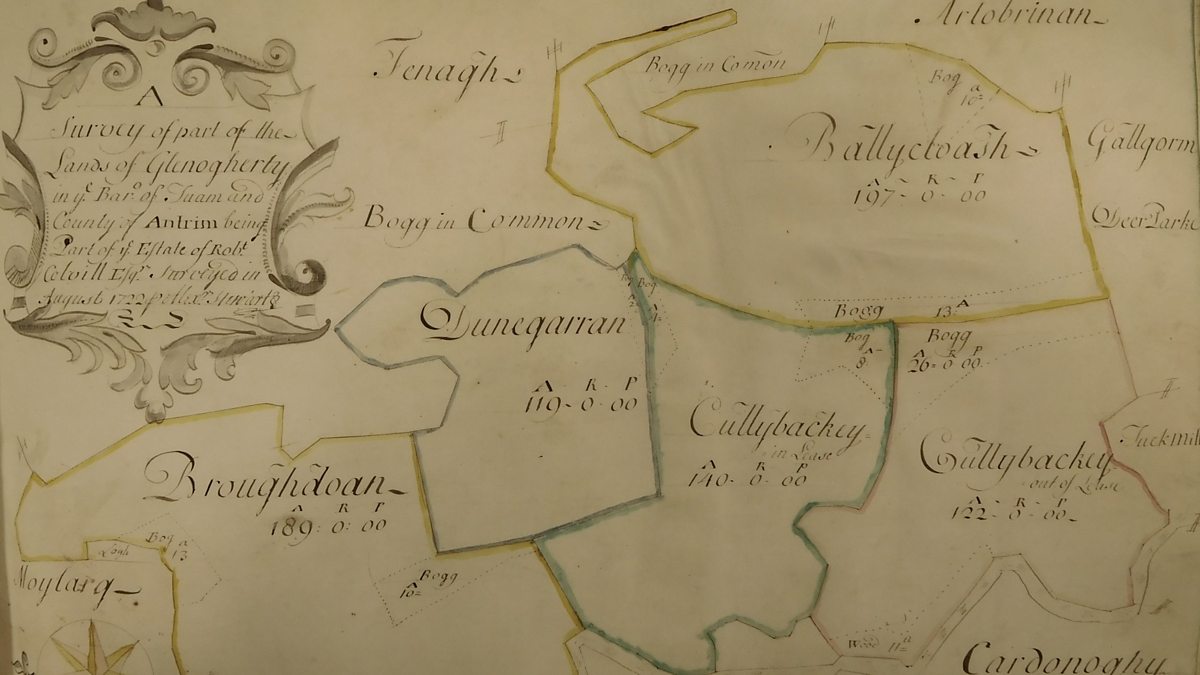 A
Survey of part of the
Lands of Glenogherty
in yͤ Barͦ of Tuam and
County of Antrim being
Part of yͤ Estate of Robᵗ
Colvill Esqʳ Surveyed in
August 1722 p Alexʳ Stewart
Fenagh
Bogg in Comon
Artobrinan
Bog
a
10
Ballycloash
A R P
197-0-00
Gallgorm
Deer Parke
Bogg in Common
Dunegarran
A R P
119-0-00
Bogg
13 A
Bog
A
8
Bogg
A R P
26=0 00
Cullybackey
in Lease
A R P
140-0-00
Cullybackey
out of Lease
A R P
122-0-00
Tuckmill
Broughdoan
A R P
189:0:00
Logh
Bog a
13
Bogg
A
10
Moylarg
Wood 11 a
Cardonoghy